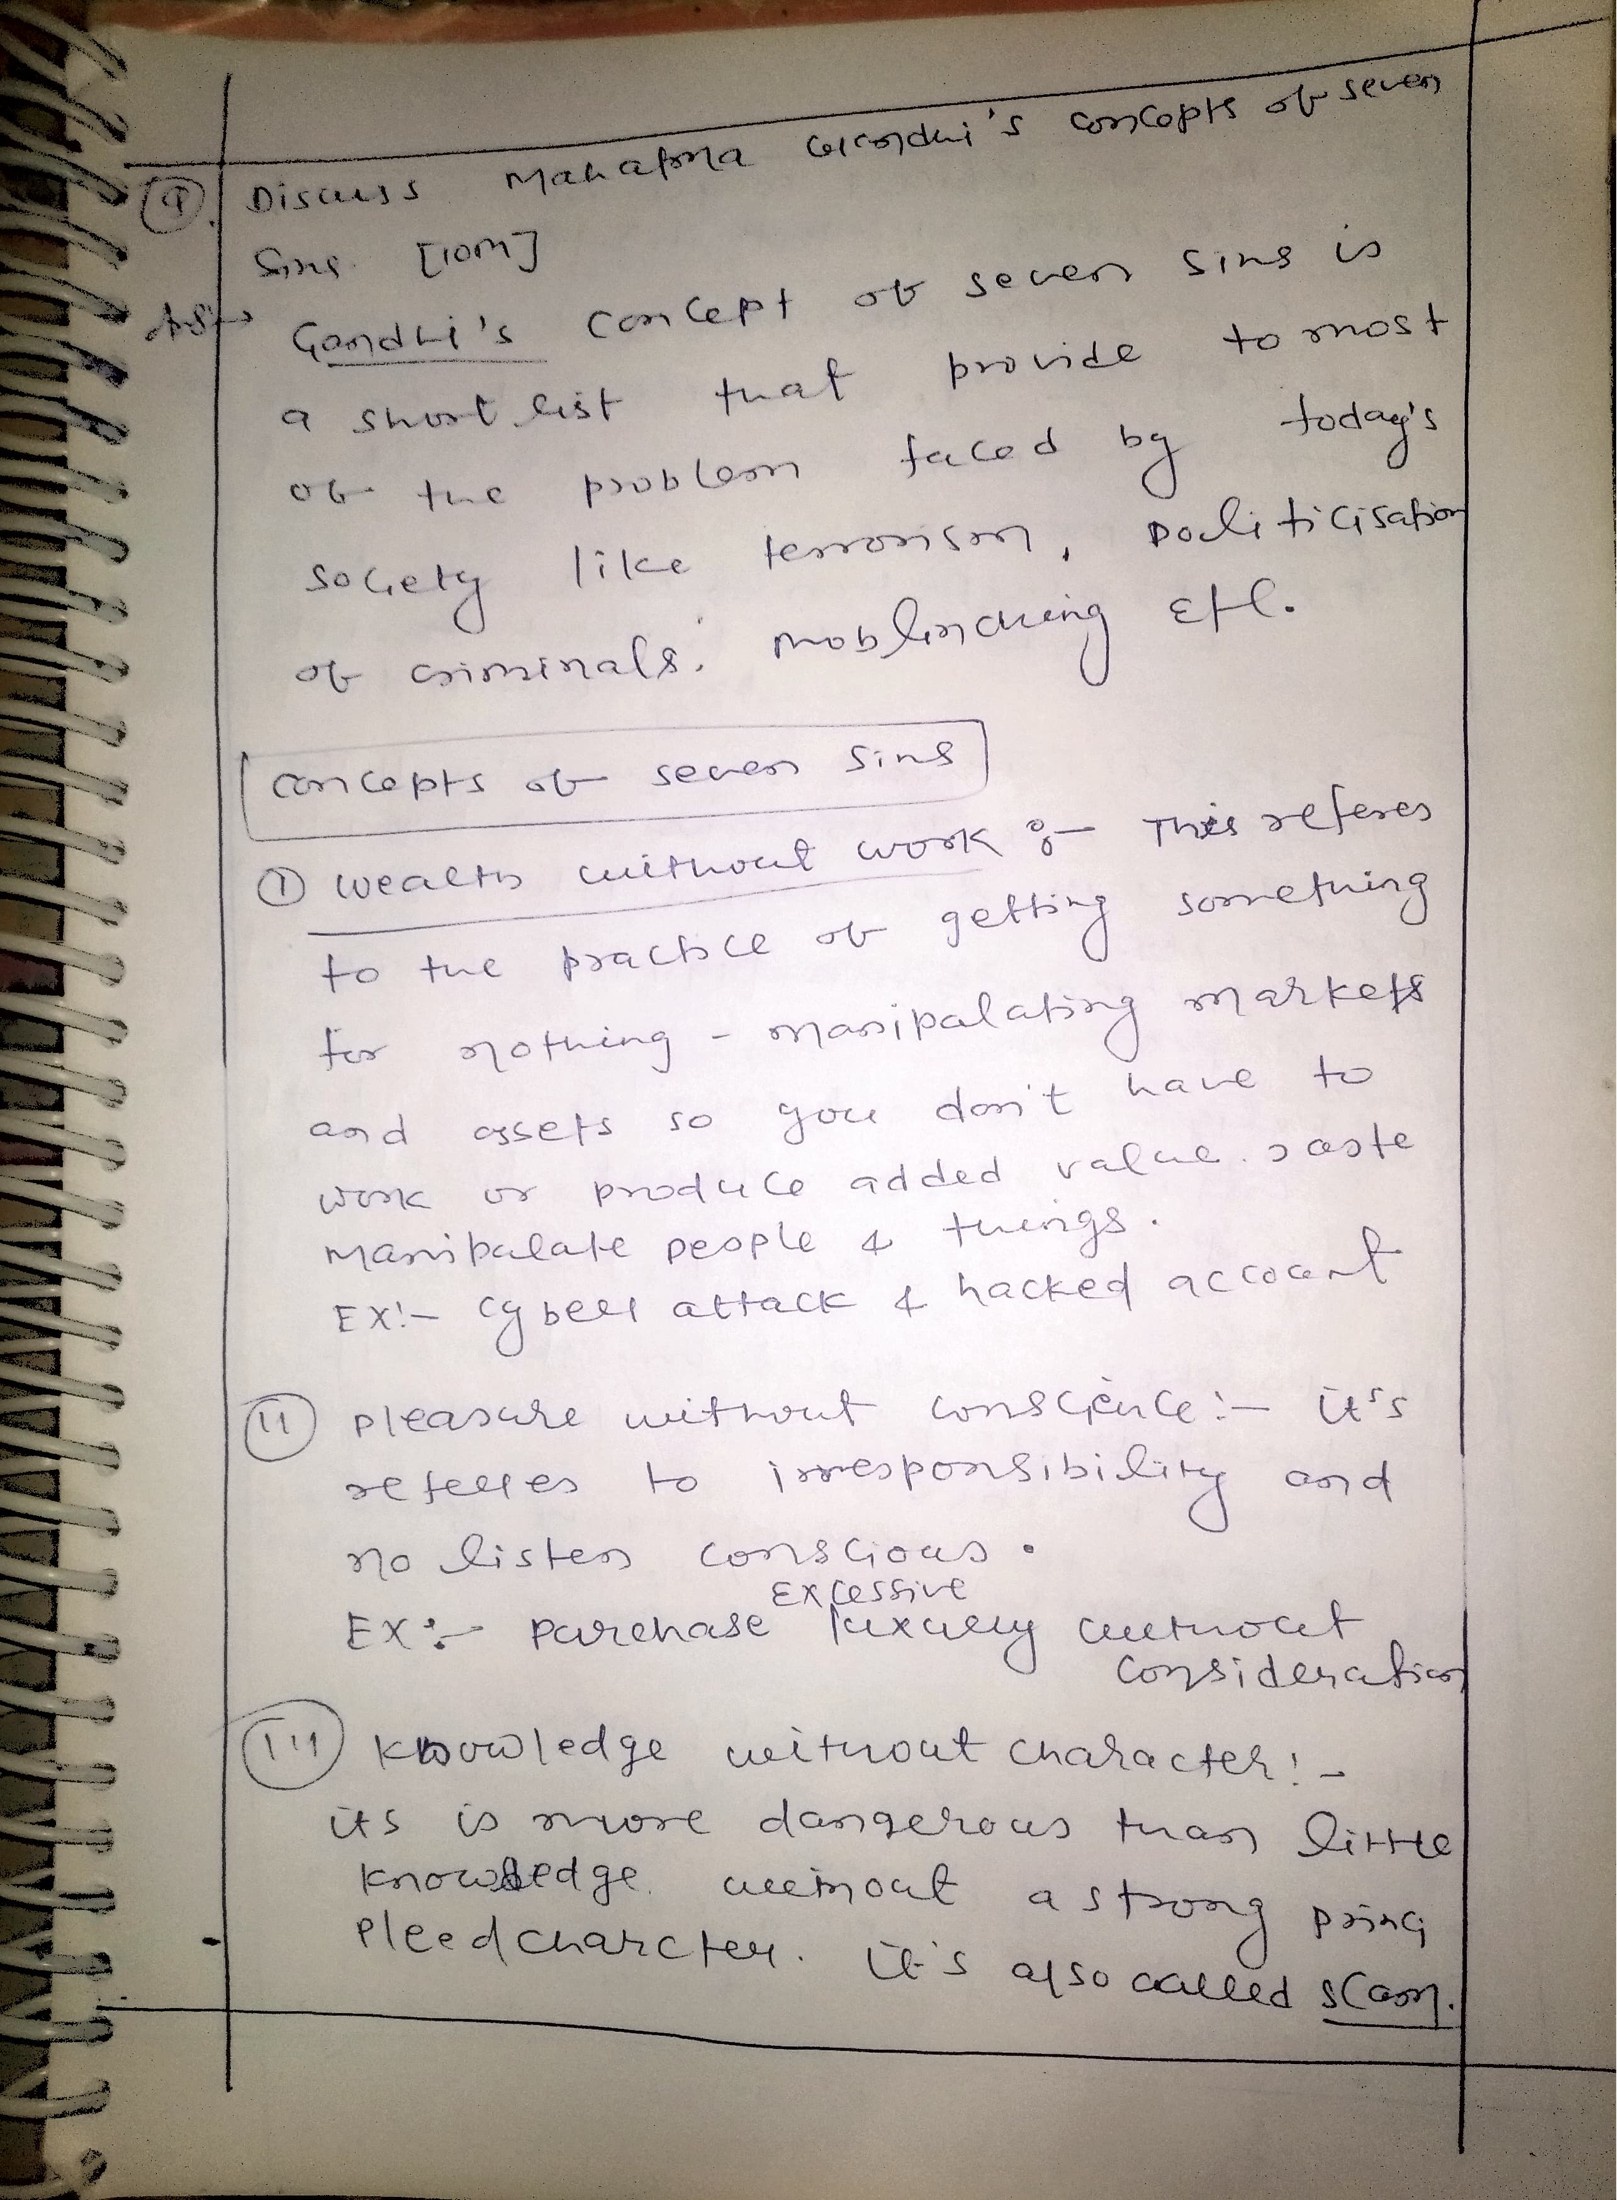 Q. Discuss Mahatma Gandhi's concepts of seven
Sins. [10M]
Ans→ Gandhi's concept of seven sins is
a short list that provide to most
of the problem faced by today's
society like terrorism, politicisation
of criminals, moblinching Etc.
concepts of seven sins
① wealth without work :- This referes
to the practice of getting something
for nothing - manipalating markets
and assets so you don't have to
work or produce added value.
manipalate people & things.
EX:- cyber attack & hacked account
(II) pleasure without conscience:- it's
referes to irresponsibility and
no listen conscious.
Excessive
EX:- purchase luxury without
consideration
(III) knowledge without character:-
its is more dangerous than little
knowledge without a strong princi
pleed charcter. it's also called scam.